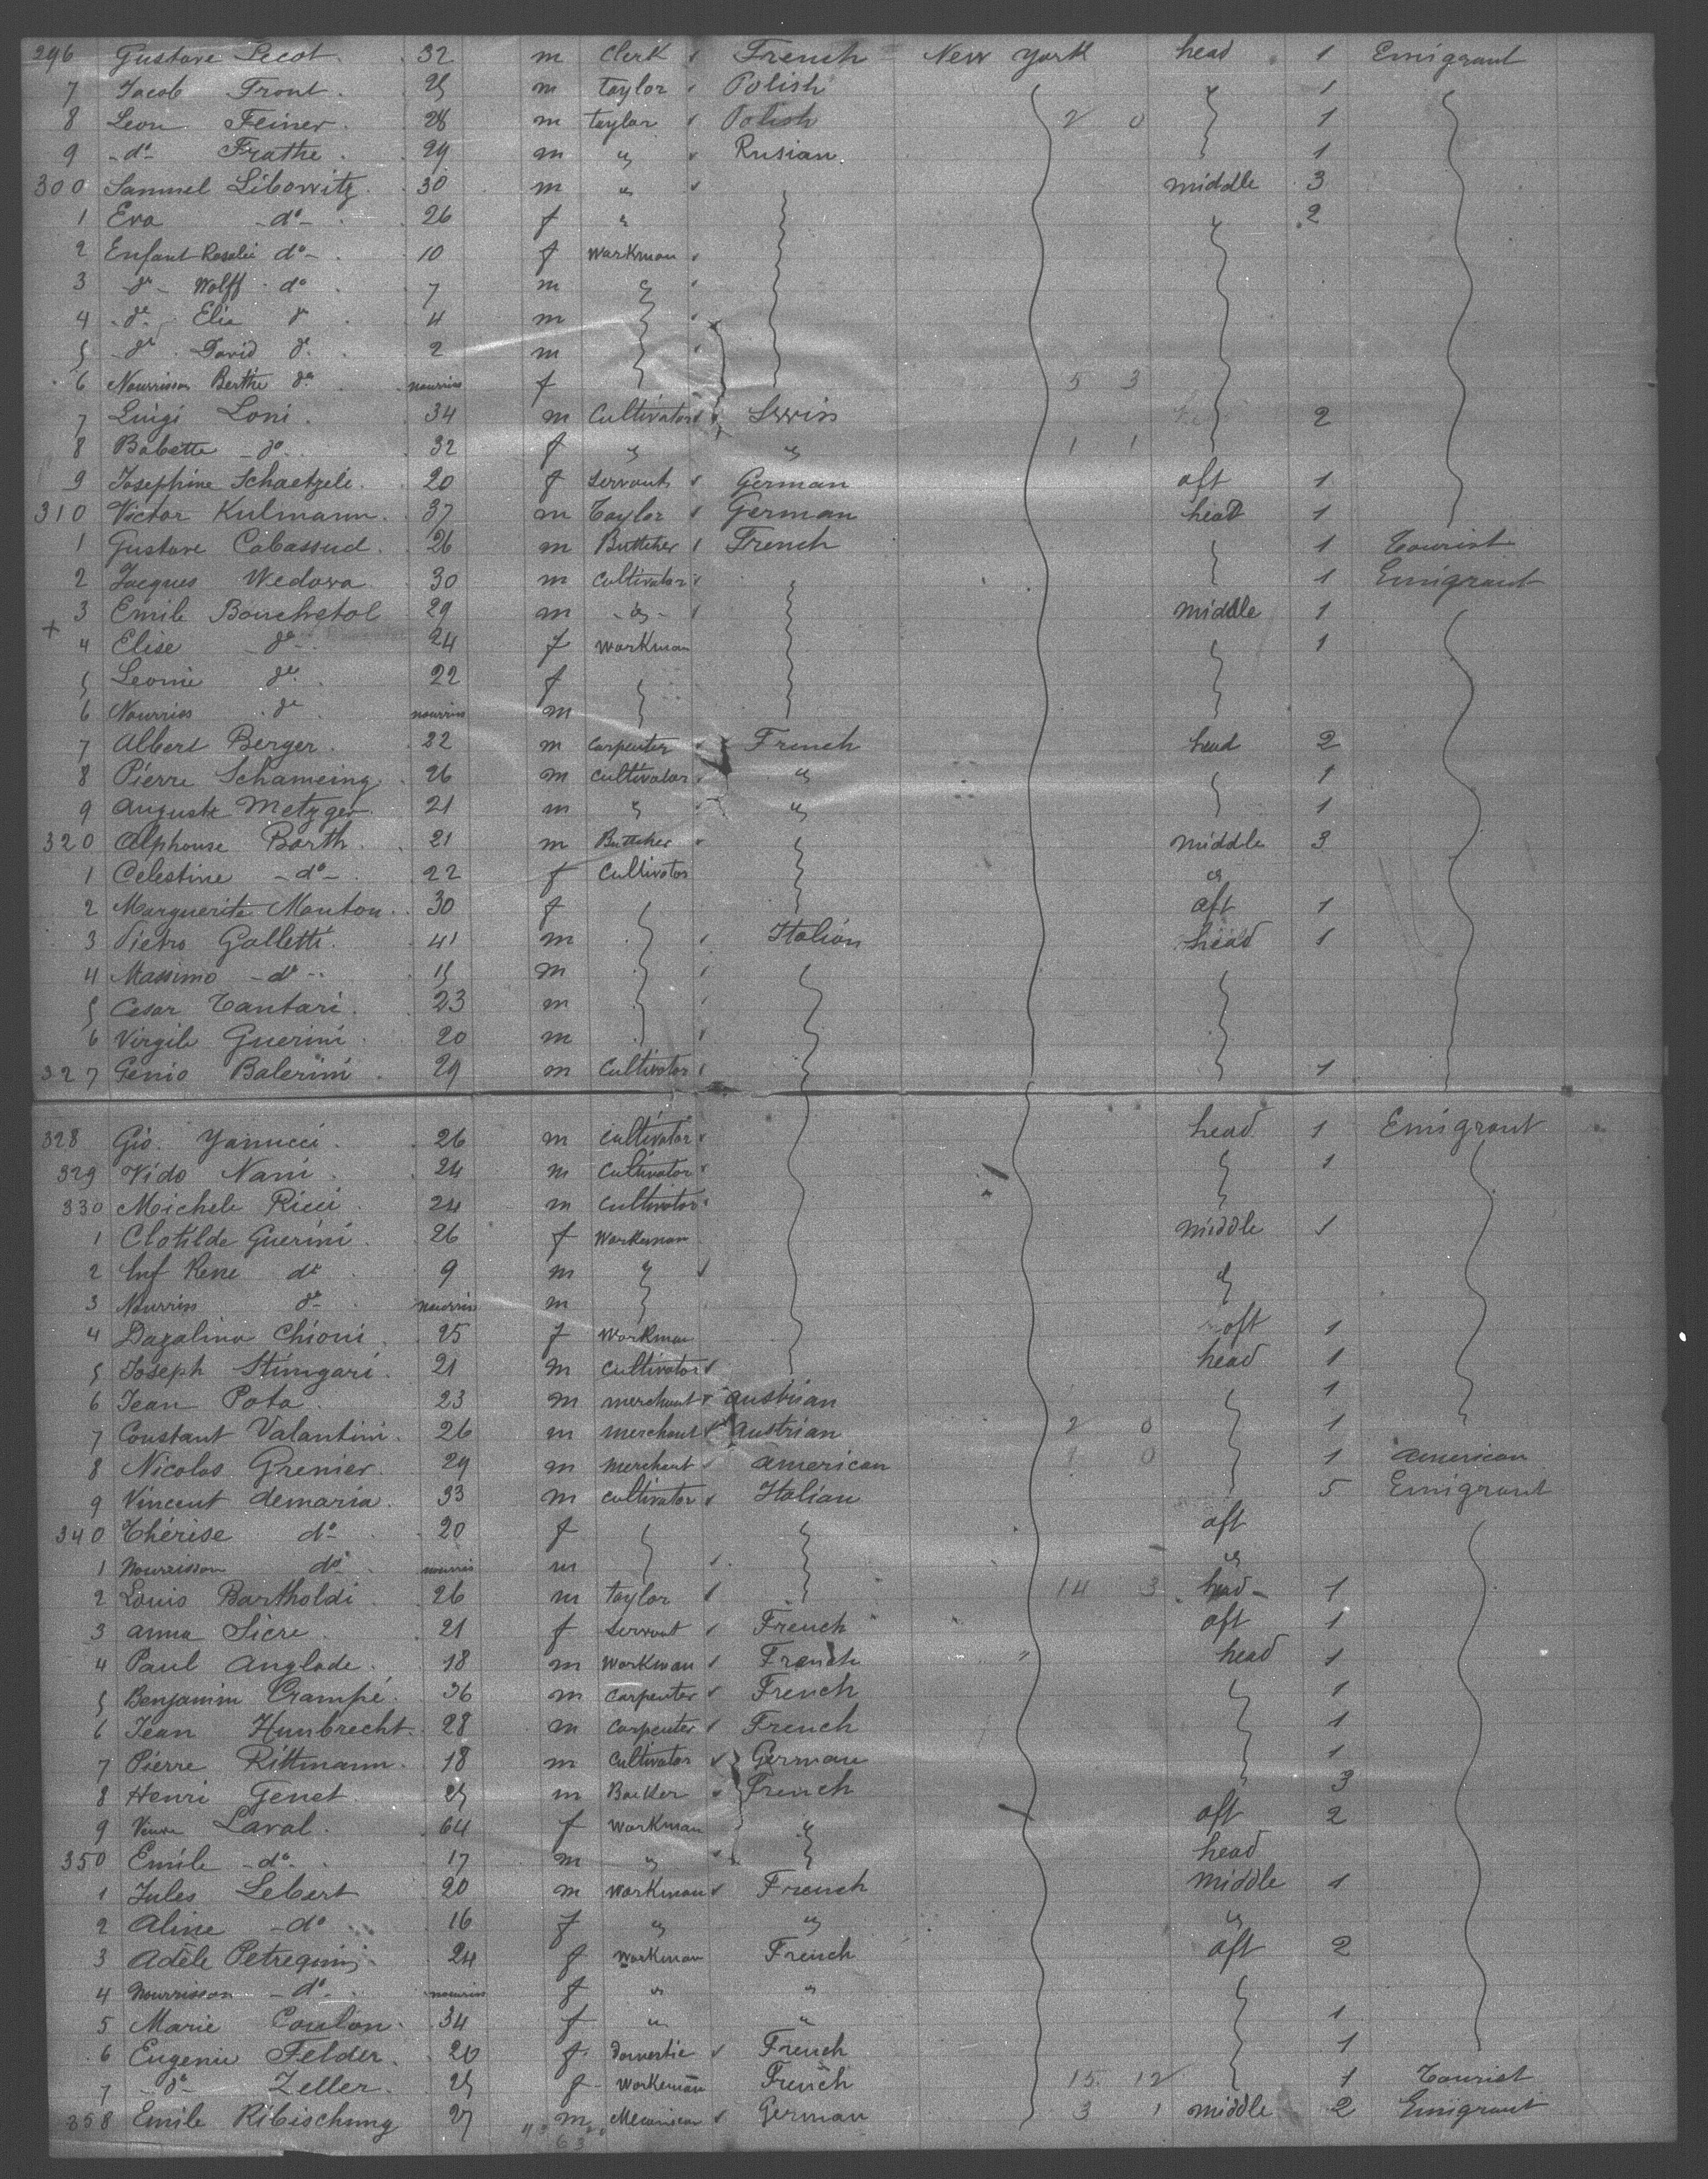 296 Gustave Lecot 32 m Clerk French New York head 1 Emigrant
7 Jacob Front 25 m Taylor Polish " 1
8 Leon Feiner 28 m taylor Polish 2 0 1
9 -do- Frathe 29 m " Rusian 1
300 Samuel Libowitz 30 m " middle 3
1 Eva -do- 26 f " " 2
2 Enfant Rosalie do- 10 f Workman
3 -do- Wolff do 7 m "
4 -do- Elie do 4 m
5 -do- David do 2 m
6 Nourrisson Berthe do nourris f 5 3
7 Luigi Loni 34 m Cultivator Swis 2
8 Babette -do- 32 f " " 1 1
9 Josephine Schaetzele 20 f Servant German aft 1
310 Victor Kulmann 37 m Taylor German head 1
1 Gustave Cabassud 26 m Buttcher French 1 Tourist
2 Jacques Wedova 30 m Cultivator 1 Emigrant
3 Emile Bouchetol 29 m -"- middle 1
+
4 Elise do- 24 f Workman 1
5 Leonie do 22 f
6 Nourris do nourris m
7 Albert Berger 22 m Carpenter French head 2
8 Pierre Schameing 26 m Cultivator " 1
9 Auguste Metzger 21 m " " 1
320 Alphonse Barth 21 m Buttcher middle 3
1 Celestine -do- 22 f Cultivator "
2 Marguerite Mouton 30 f aft 1
3 Pietro Galletti 41 m Italian head 1
4 Massimo -do- 15 m
5 Cesar Tantari 23 m
6 Virgile Guerini 20 m
327 Genio Balerini 29 m Cultivator 1
328 Gio. Yanucci 26 m Cultivator head 1 Emigrant
329 Vido Nani 24 m Cultivator 1
330 Michele Ricci 24 m Cultivator
1 Clotilde Guerini 26 f Workeman middle 1
2 Inf Rene do 9 m " "
3 Nourris do- nourris m
4 Dazalina Chioni 25 f Workman aft 1
5 Joseph Stingari 21 m Cultivator head 1
6 Jean Pota 23 m merchant Austrian 1
7 Constant Valantini 26 m merchant Austrian 2 0 1
8 Nicolas Grenier 29 m merchant American 1 0 1 American
9 Vincent demaria 33 m Cultivator Italian 5 Emigrant
340 Thérèse do- 20 f aft
1 Nourrisson do- nourris m "
2 Louis Bartholdi 26 m taylor 14 3 head- 1
3 Anna Sicre 21 f Servant French aft 1
4 Paul Anglade 18 m Workman French " head 1
5 Benjamin Crampé 36 m Carpenter French 1
6 Jean Hunbrecht 28 m Carpenter French 1
7 Pierre Rittmann 18 m Cultivator German 1
8 Henri Genet 25 m Backer French 3
9 Veuve Laval 64 f Workman " aft 2
350 Emile -do- 17 m " head
1 Jules Lebert 20 m Workman French middle 1
2 Aline -do 16 f " " "
3 Adèle Petrequin 24 f Workman French aft 2
4 Nourrisson -do- nourris f " "
5 Marie Coulon 34 f " " 1
6 Eugenie Felder 20 f Domestic French 1
7 -do- Zeller 25 f Workeman French 15 12 1 Tourist
358 Emile Ribischung 27 m Mecanician German 3 1 middle 2 Emigrant
63